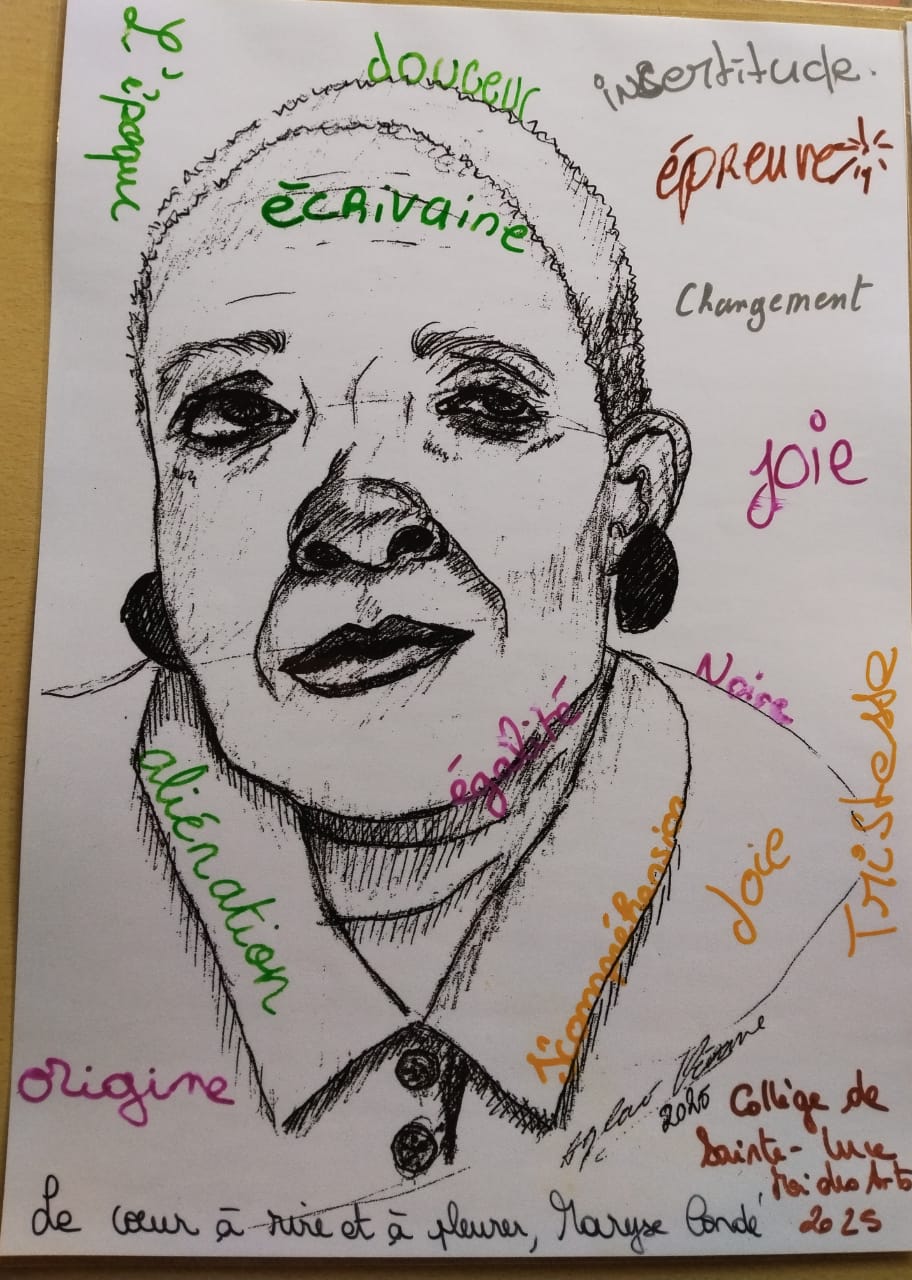 L'époque
douceur
insertitude.
épreuve
écrivaine
Changement
joie
Noire
égalité
Tristesse
aliénation
Joie
Icompréhension
origine
2020
Collège de
Sainte-Luce
Mai des Arts
2025
Le cœur à rire et à pleurer, Maryse Condé